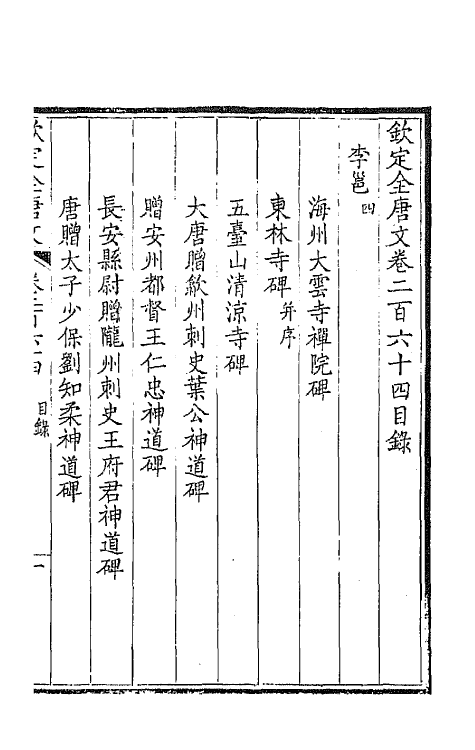 欽定全唐文卷二百六十四目錄
李邕 四
海州大雲寺禪院碑
東林寺碑 并序
五臺山清涼寺碑
大唐贈歙州刺史葉公神道碑
贈安州都督王仁忠神道碑
長安縣尉贈隴州刺史王府君神道碑
唐贈太子少保劉知柔神道碑
欽定全唐文 卷二百六十四 目錄 一